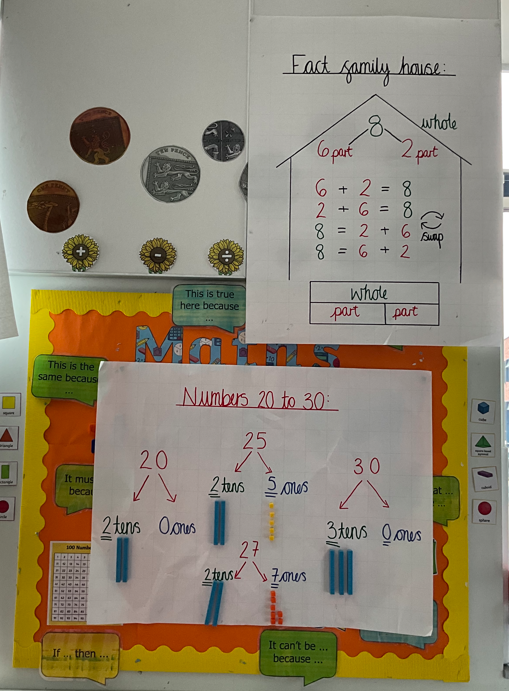 Fact family house:
8 whole
6 part 2 part
6 + 2 = 8
2 + 6 = 8
8 = 2 + 6
swap
8 = 6 + 2
whole
part part
TEN PENCE
+ - ÷
This is true
here because
...
Maths
This is the
same because
...
Numbers 20 to 30:
20
2 tens 0 ones
25
2 tens 5 ones
30
3 tens 0 ones
27
2 tens 7 ones
It mus
beca
at ...
...
100 Numbe
If ... then ...
It can't be ...
because ...